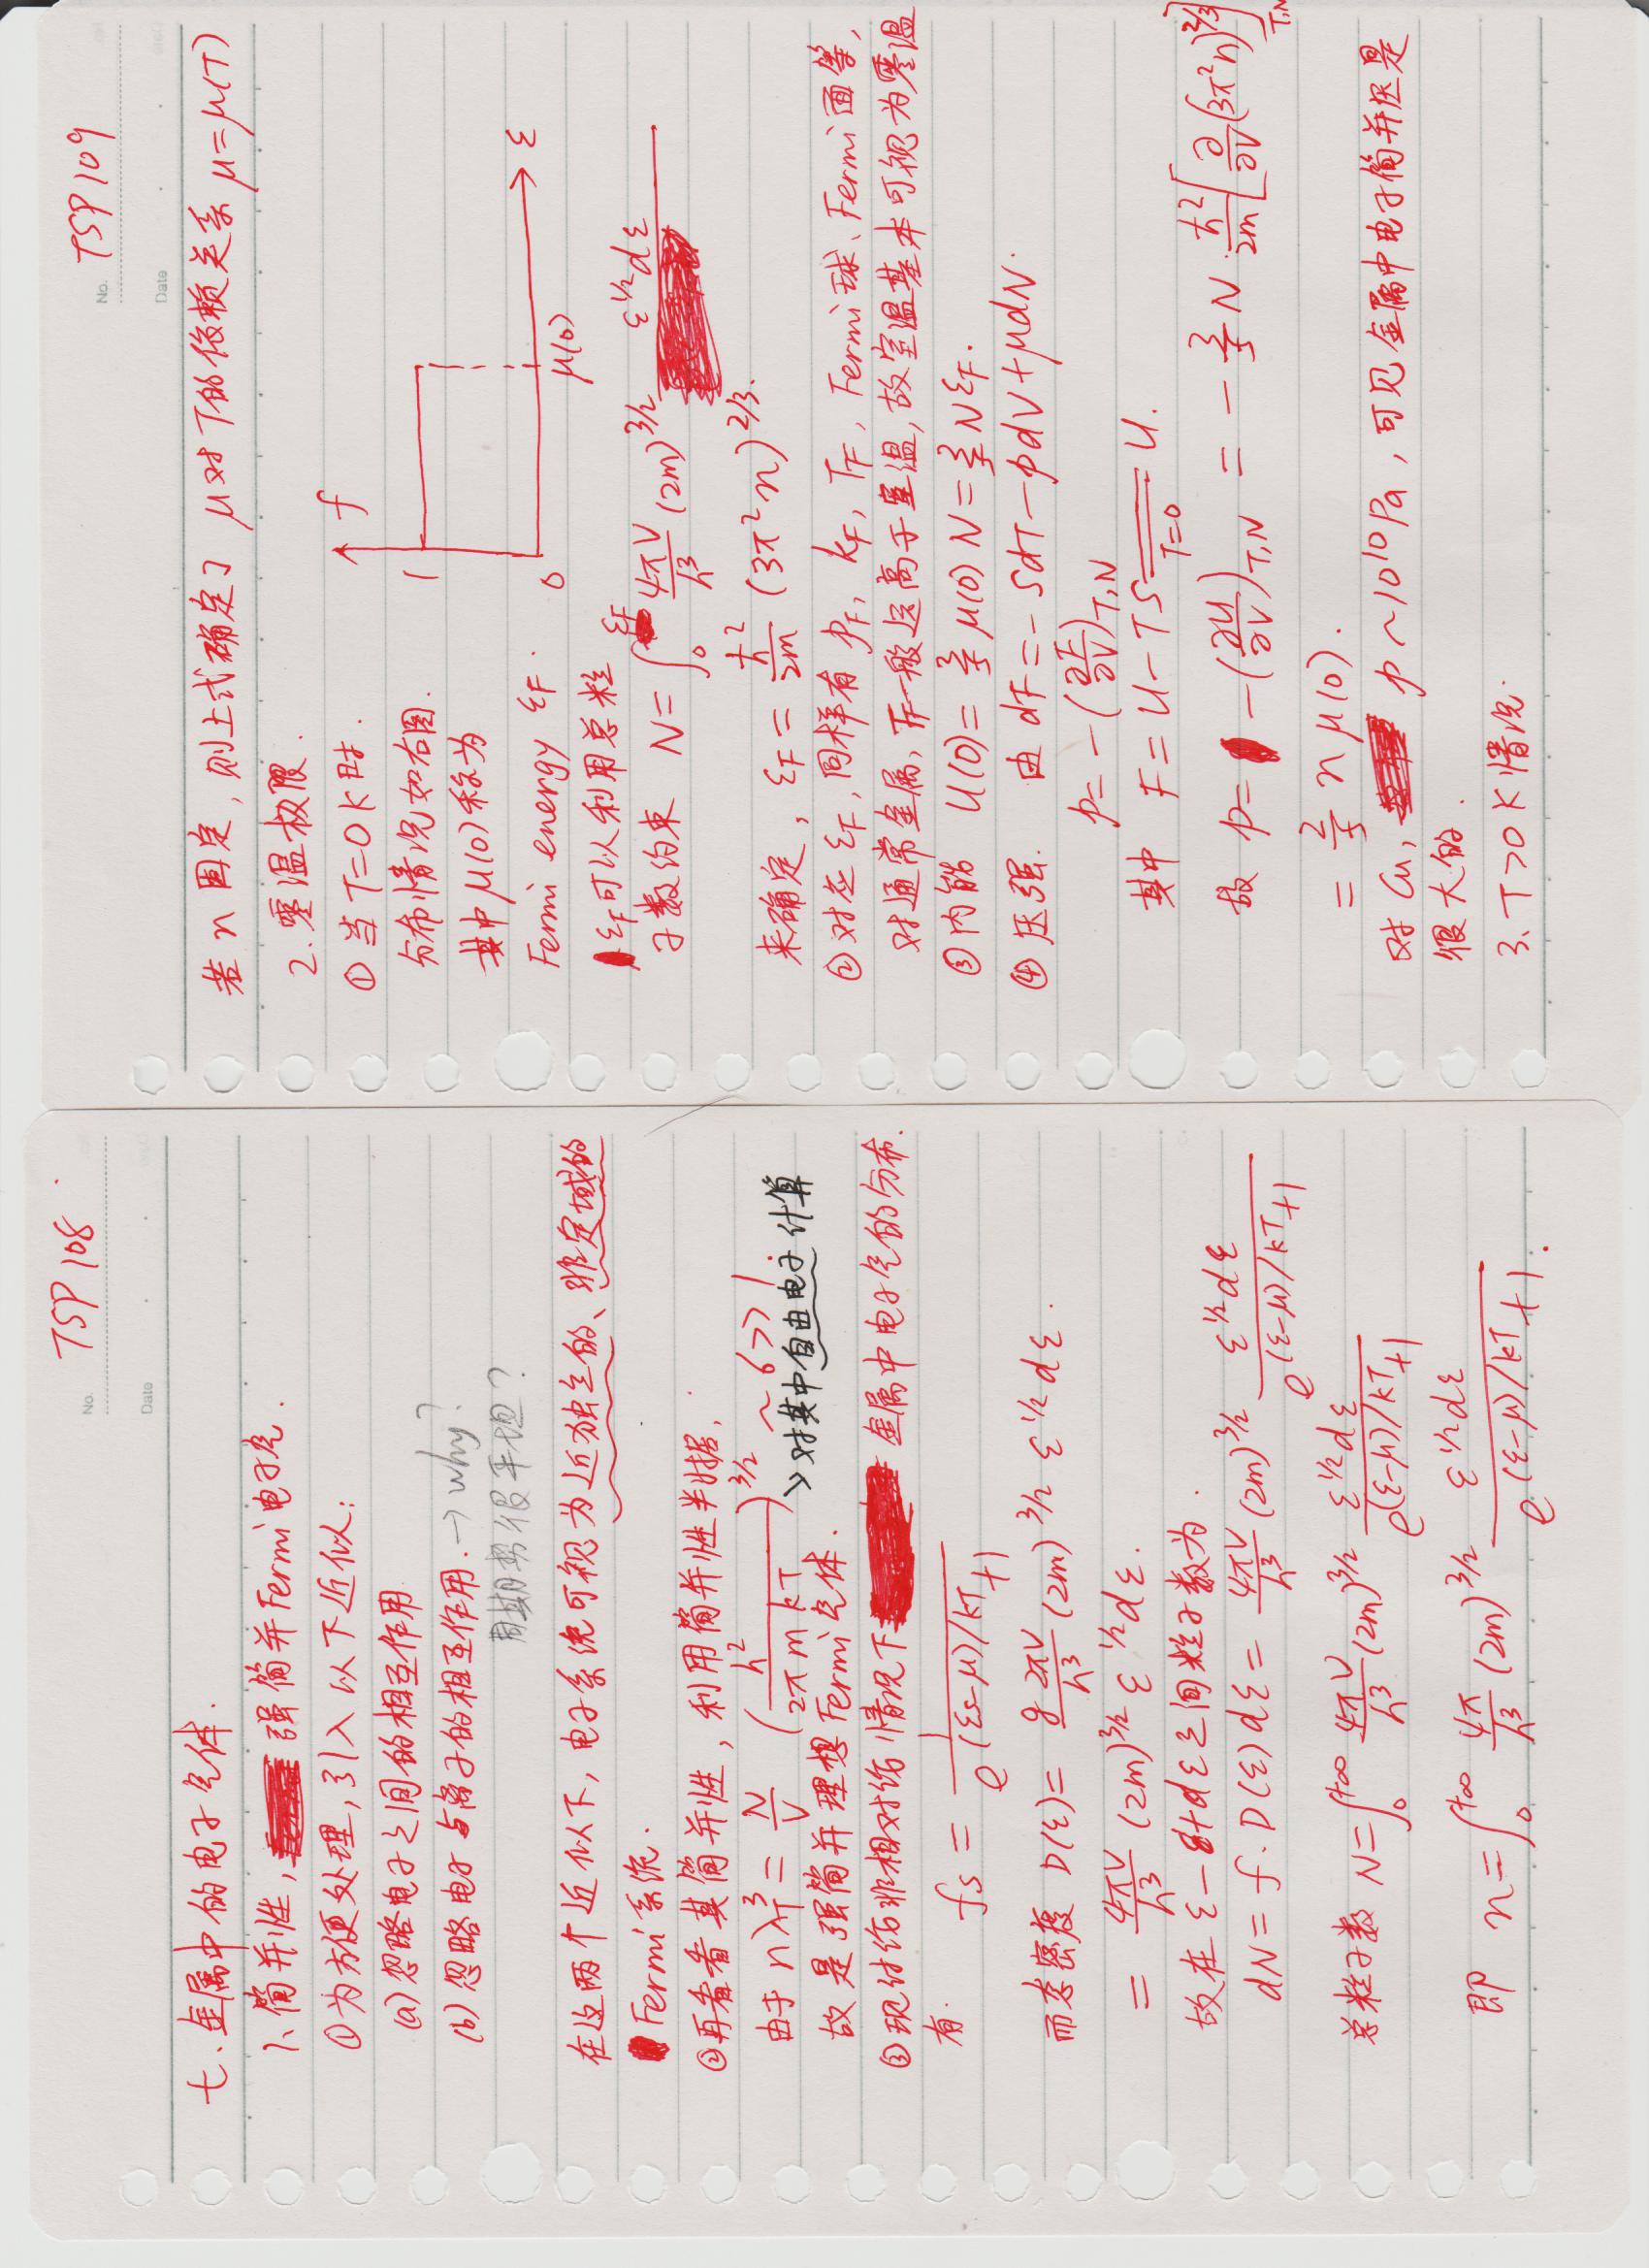 No. TSP 108
Date
七、金属中的电子气体.
1、简并性, 强简并Fermi电子气.
①为方便处理,引入以下近似:
(a)忽略电子之间的相互作用
(b)忽略电子与离子的相互作用. → why?
周期势很平坦?
在这两个近似下,电子系统可视为近独立的、非定域的
Fermi系统.
②再看看其简并性,利用简并性判据,
由于 nλ_T^3 = N/V (h^2/(2πmkT))^{3/2} ~ 6 >> 1.
→对其中自由电子计算
故是强简并理想Fermi气体.
③现讨论非相对论情况下 金属中电子气的分布.
有. f_s = 1/(e^{(ε_s-μ)/kT}+1)
而态密度 D(ε) = g2πV/h^3 (2m)^{3/2} ε^{1/2}dε.
= 4πV/h^3 (2m)^{3/2} ε^{1/2}dε.
故在 ε-ε+dε之间粒子数为.
dN = f·D(ε)dε = 4πV/h^3 (2m)^{3/2} ε^{1/2}dε/(e^{(ε-μ)/kT}+1)
总粒子数 N = ∫_0^{+∞} 4πV/h^3 (2m)^{3/2} ε^{1/2}dε/(e^{(ε-μ)/kT}+1)
即 n = ∫_0^{+∞} 4π/h^3 (2m)^{3/2} ε^{1/2}dε/(e^{(ε-μ)/kT}+1).
No. TSP 109
Date
若n固定,则上式确定了 μ对T的依赖关系 μ=μ(T)
2.零温极限.
①当T=0K时.
分布情况如右图.
其中μ(0)称为
Fermi energy ε_F.
f
1
0
μ(0)
ε
ε_F可以利用总粒
子数约束 N = ∫_0^{ε_F} 4πV/h^3 (2m)^{3/2} ε^{1/2}dε
来确定, ε_F = ħ^2/2m (3π^2n)^{2/3}.
②对应ε_F,同样有 p_F, k_F, T_F, Fermi球、Fermi面等,
对通常金属,T_F一般远高于室温,故室温基本可视为零温
③内能 U(0) = 3/5 μ(0)N = 3/5 Nε_F.
④压强. 由 dF = -SdT-pdV+μdN.
p = -(∂F/∂V)_{T,N}
其中 F = U-TS ==(T=0)== U.
故 p = -(∂U/∂V)_{T,N} = -3/5 N·ħ^2/2m [∂/∂V (3π^2n)^{2/3}]_{T,N}
= 2/5 nμ(0).
对Cu, p~10^{10}Pa,可见金属中电子简并压是
很大的.
3、T>0K情况.